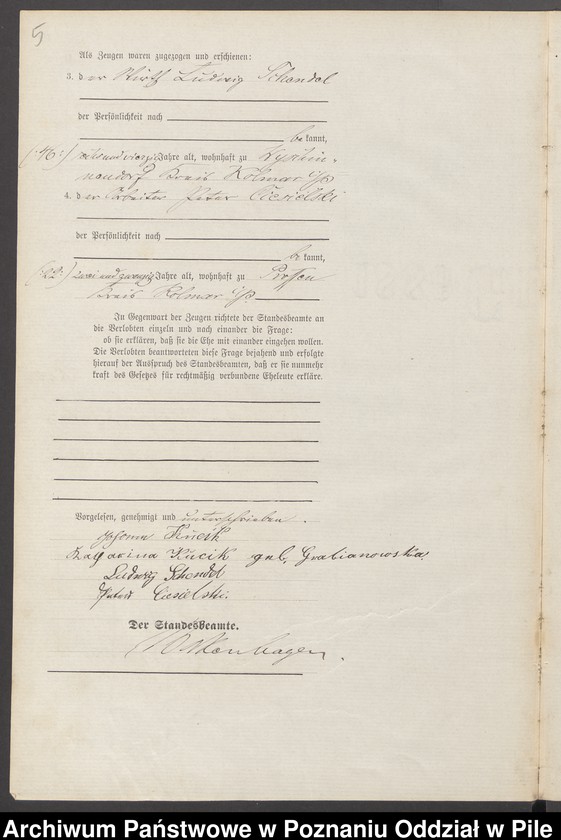 5
Als Zeugen waren zugezogen und erschienen:
3. der Wirth Ludwig Schendel
der Persönlichkeit nach
bekannt,
(:46:) sechs und vierzig Jahre alt, wohnhaft zu
Kreis Kolmar i/P
4. der Arbeiter Peter Ciesielski
der Persönlichkeit nach
bekannt,
(:22:) zwei und zwanzig Jahre alt, wohnhaft zu
Kreis Kolmar i/P
In Gegenwart der Zeugen richtete der Standesbeamte an
die Verlobten einzeln und nach einander die Frage:
ob sie erklären, daß sie die Ehe mit einander eingehen wollen.
Die Verlobten beantworteten diese Frage bejahend und erfolgte
hierauf der Ausspruch des Standesbeamten, daß er sie nunmehr
kraft des Gesetzes für rechtmäßig verbundene Eheleute erkläre.
Vorgelesen, genehmigt und unterschrieben.
Kucik
Kucik geb. Gratianowska
Ludwig Schendel
Peter Ciesielski.
Der Standesbeamte.
Archiwum Państwowe w Poznaniu Oddział w Pile